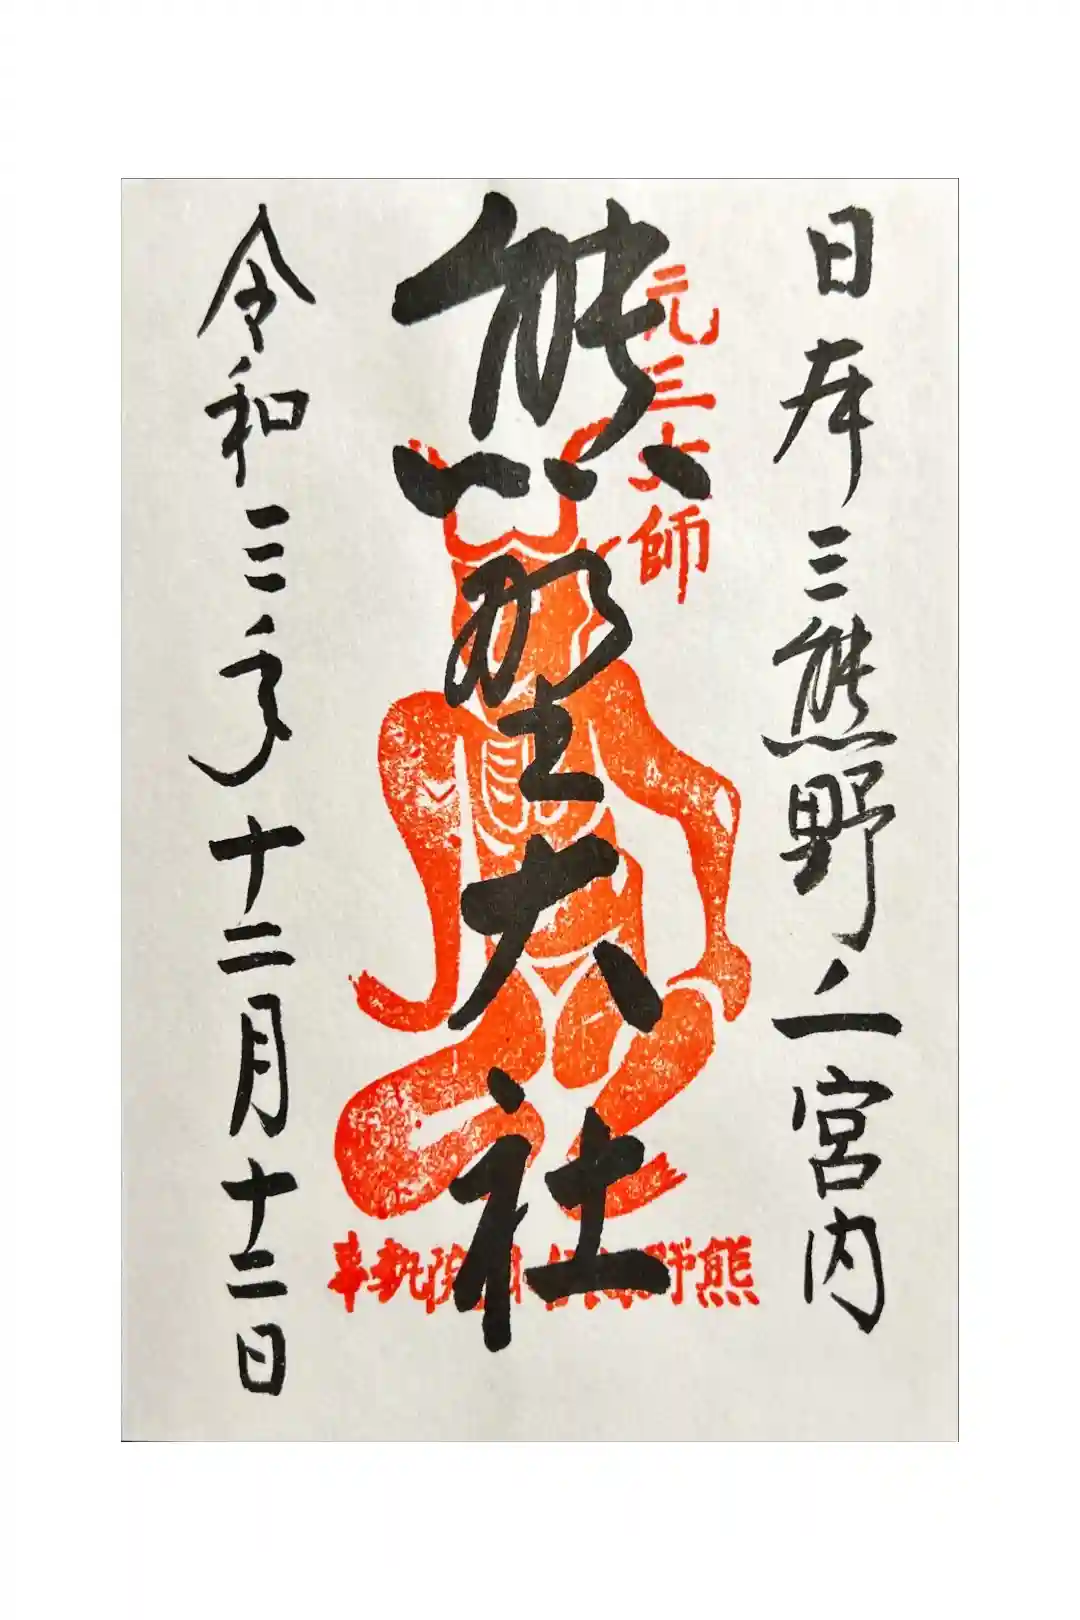 日本三熊野之一宮内
元三大師
熊野大社
令和三年十二月十二日
熊野 院執事